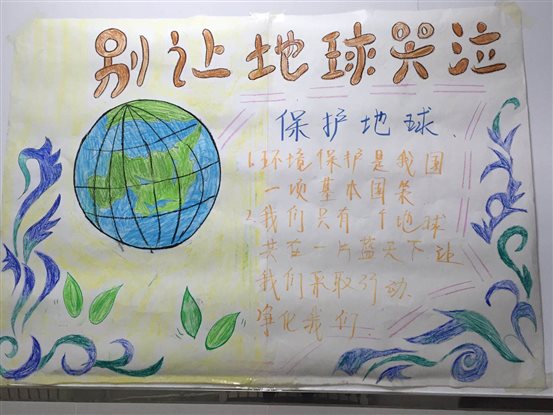 别让地球哭泣
保护地球.
1.环境保护是我国
一项基本国策
2.我们只有一个地球
共在一片蓝天下让
我们采取行动.
净化我们.